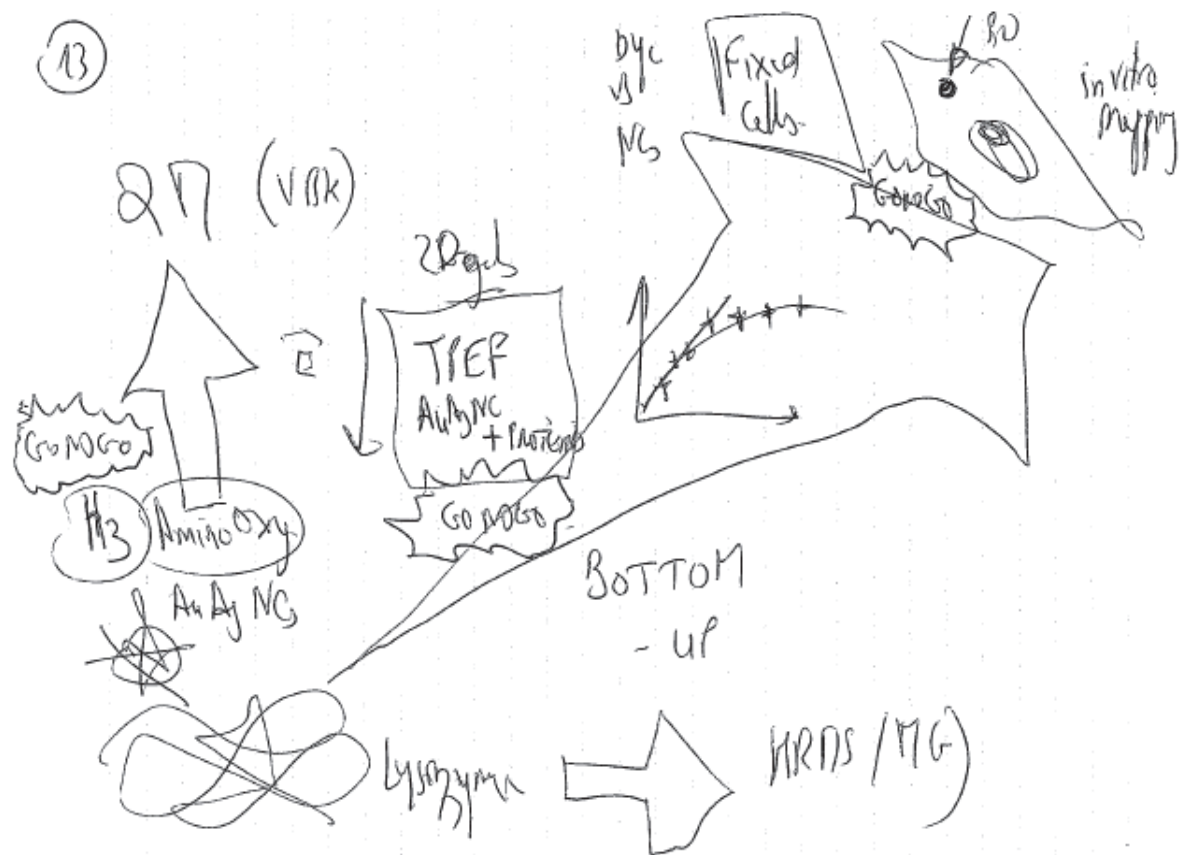 13
Dye
vs
NCs
Fixed
Cells.
in vitro
mapping
GONOGO
(VBK)
2D gels
TPEF
AuAgNC
+ PROTEINS
GONOGO
GONOGO
AminoOxy
AuAg NCs
BOTTOM
- UP
Lysozyme